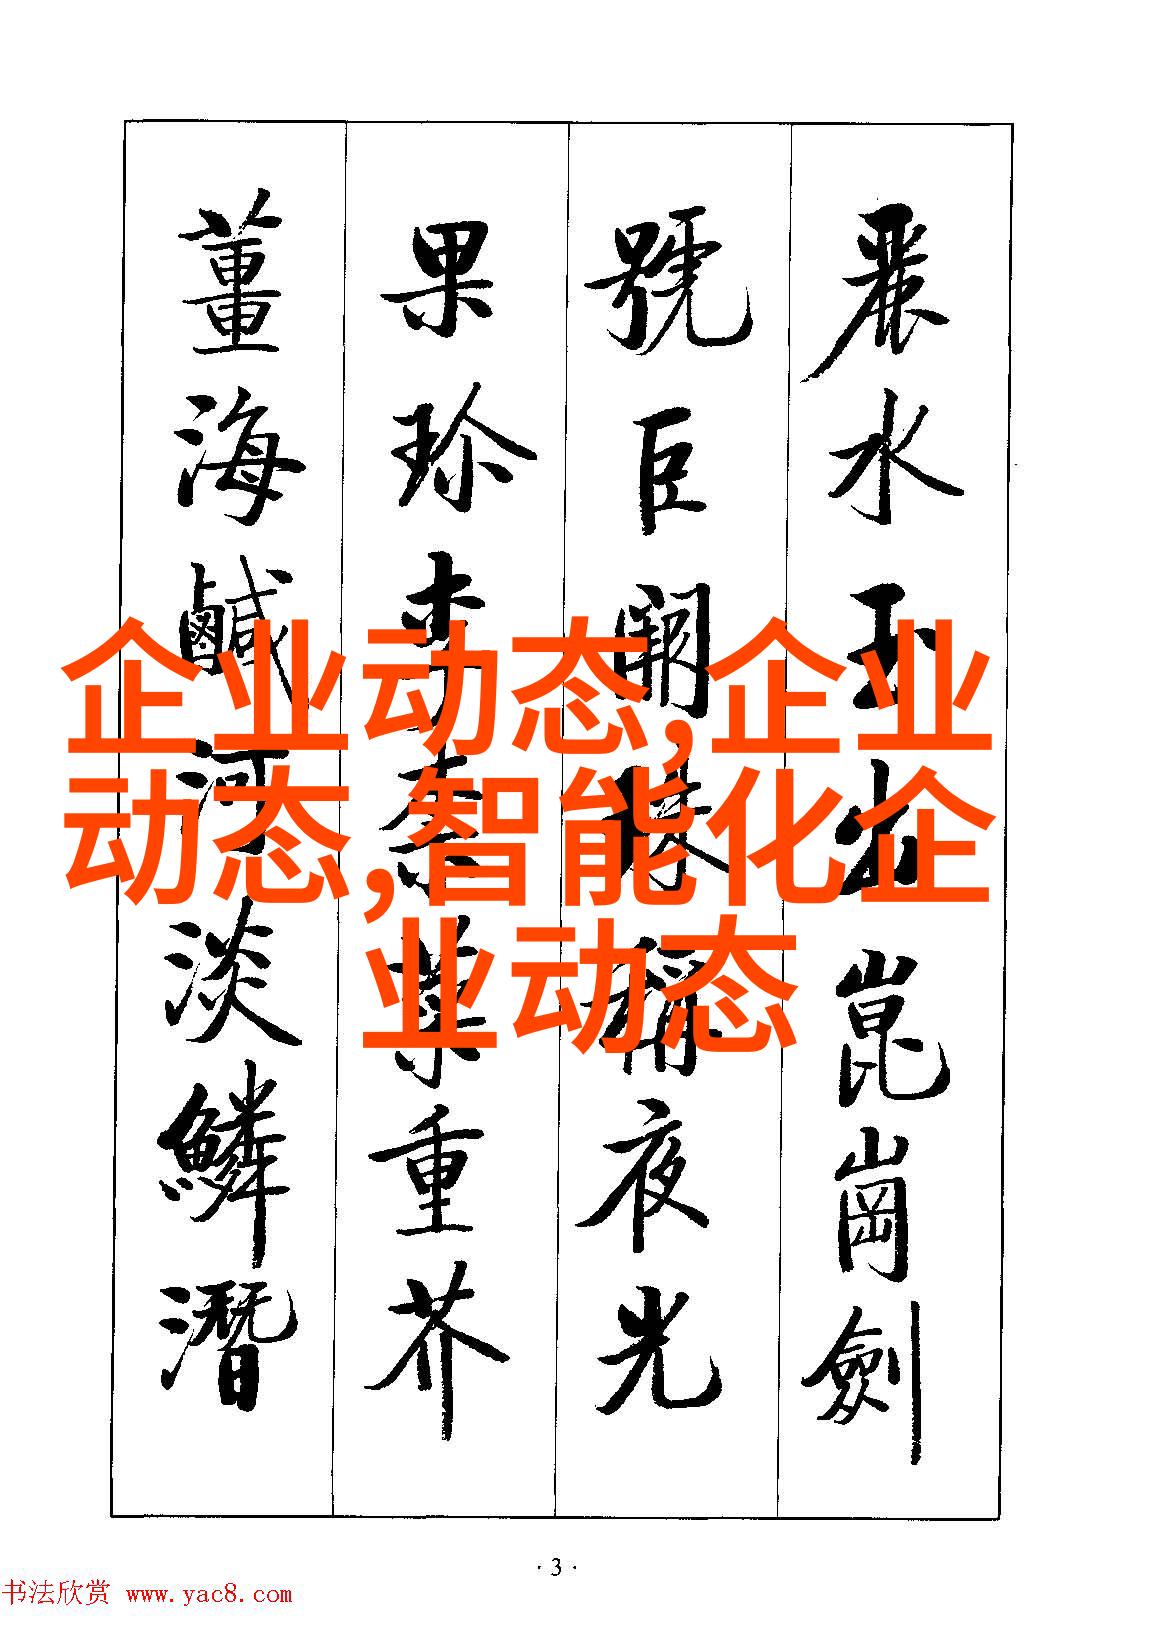 麗水玉出崑崗劍
號巨闕珠稱夜光
果珍李柰菜重芥
薑海鹹河淡鱗潛
企业动态,企业
动态,智能化企
业动态
· 3 ·
书法欣赏 www.yac8.com